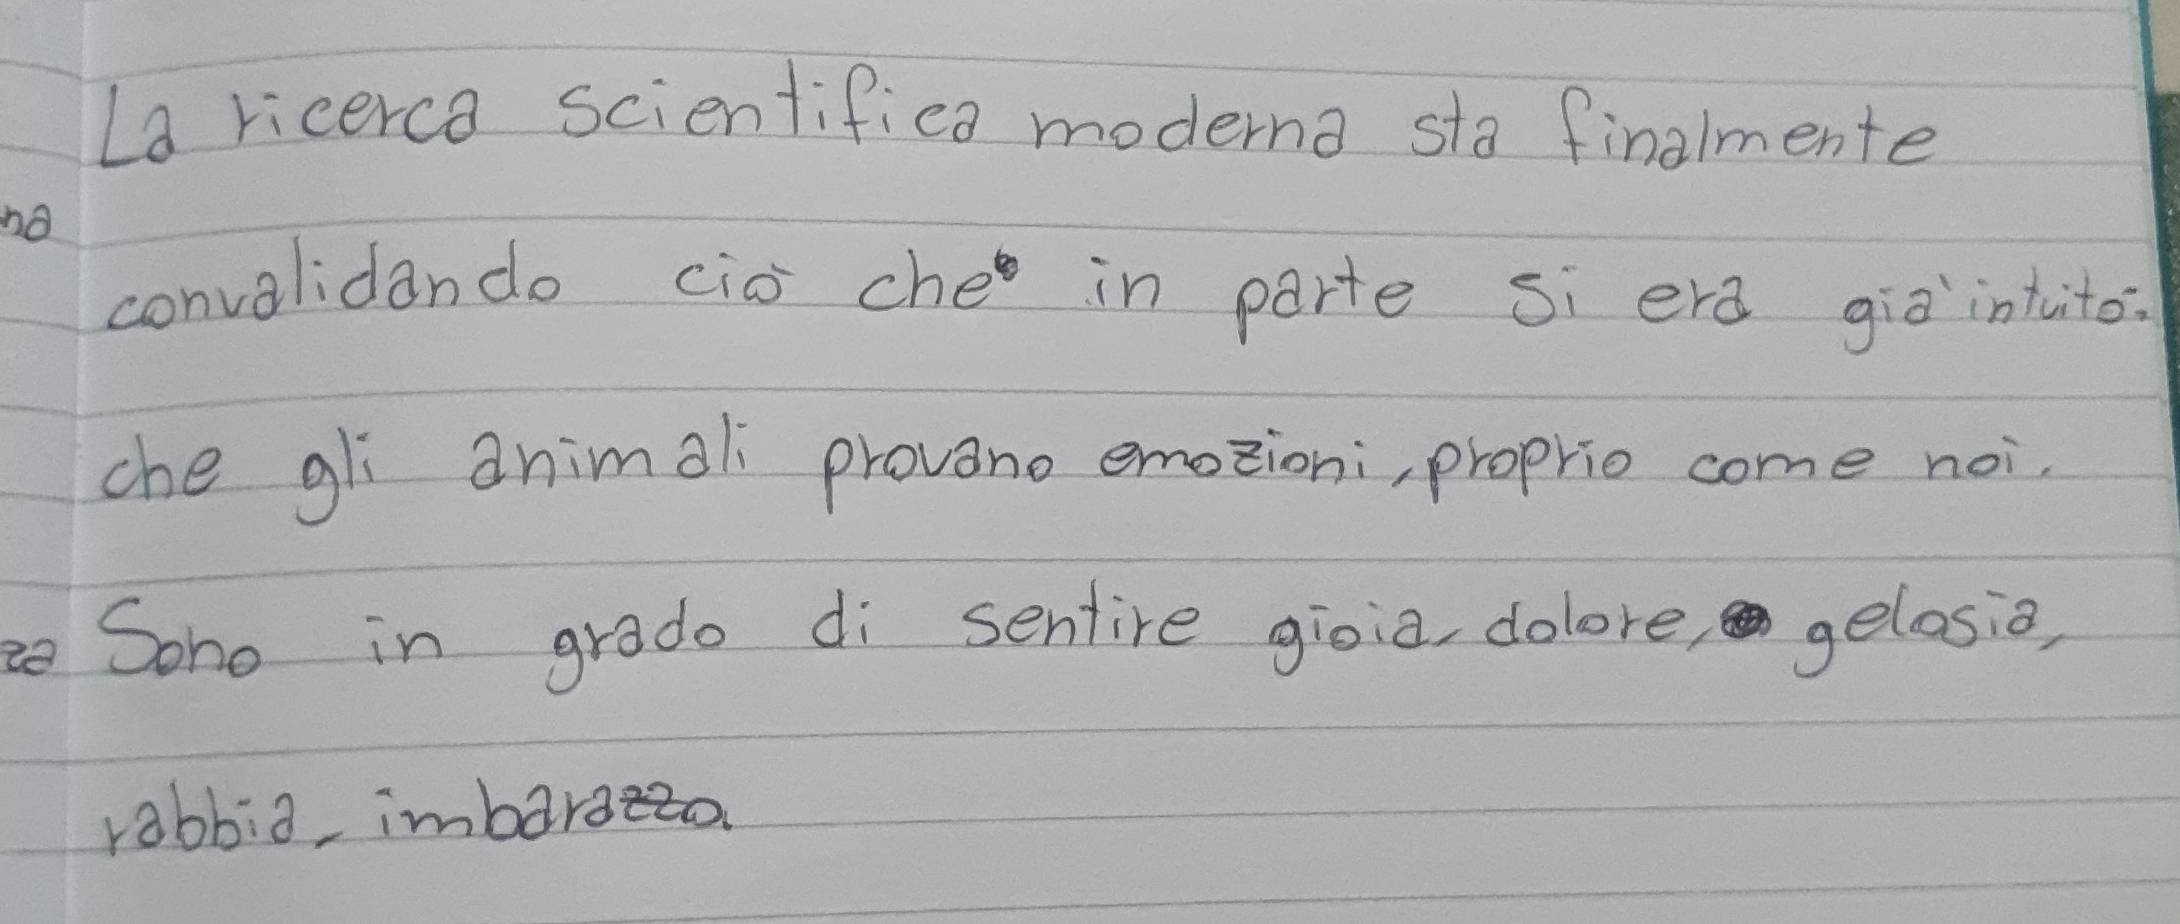 La ricerca scientifica moderna sta finalmente
na
convalidando ciò che in parte si era già intuito:
che gli animali provano emozioni, proprio come noi.
za
Sono in grado di sentire gioia, dolore, gelosia,
rabbia, imbarazzo.